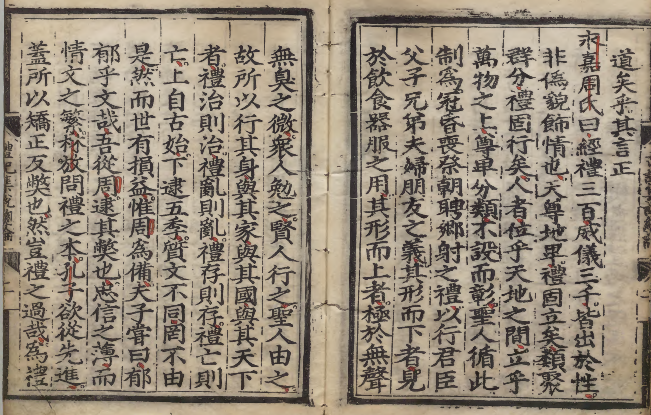 道矣乎其言正
永嘉周氏曰經禮三百威儀三千皆出於性
非偽貌飾情也天尊地卑禮固立矣類聚
群分禮固行矣人者位乎天地之間立乎
萬物之上尊卑分類不設而彰聖人循此
制為冠昏喪祭朝聘鄉射之禮以行君臣
父子兄弟夫婦朋友之義其形而下者見
於飲食器服之用其形而上者極於無聲
無臭之微衆人勉之賢人行之聖人由之
故所以行其身與其家與其國與其天下
者禮治則治禮亂則亂禮存則存禮亡則
亡上自古始下逮五季質文不同罔不由
是然而世有損益惟周為備夫子嘗曰郁
郁乎文哉吾從周逮其弊也忠信之薄而
情文之繁林放問禮之本孔子欲從先進
蓋所以矯正反弊也然豈禮之過哉為禮